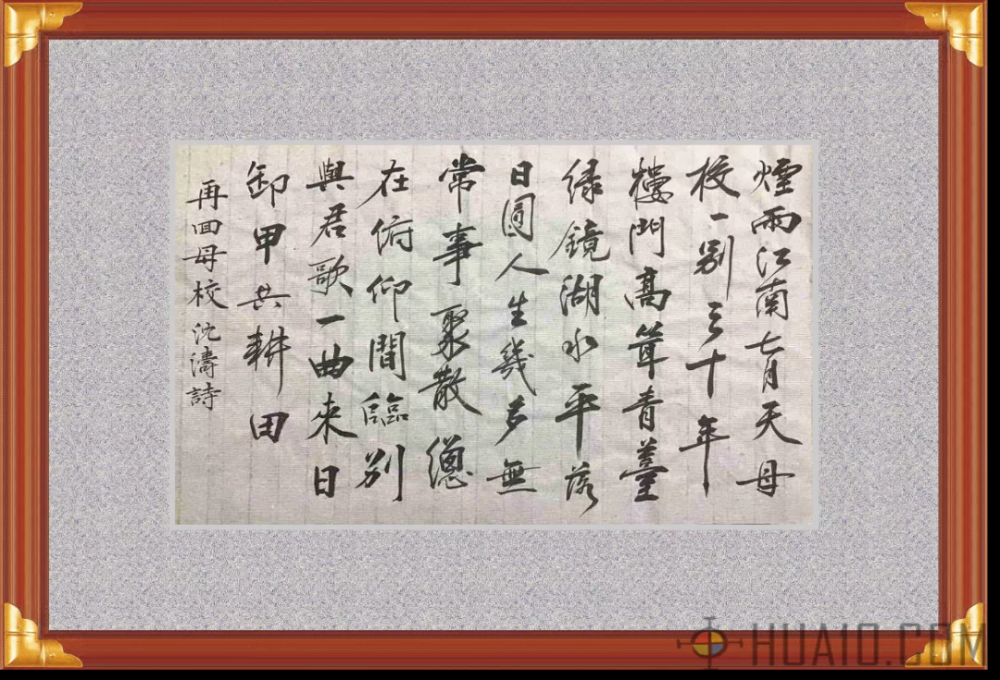 煙雨江南七月天母
校一别三十年
樓門高聳青薹
绿鏡湖水平落
日圓人生幾多無
常事聚散總
在俯仰間臨別
與君歌一曲來日
卸甲共耕田
再回母校沈濤詩
HUA10.COM